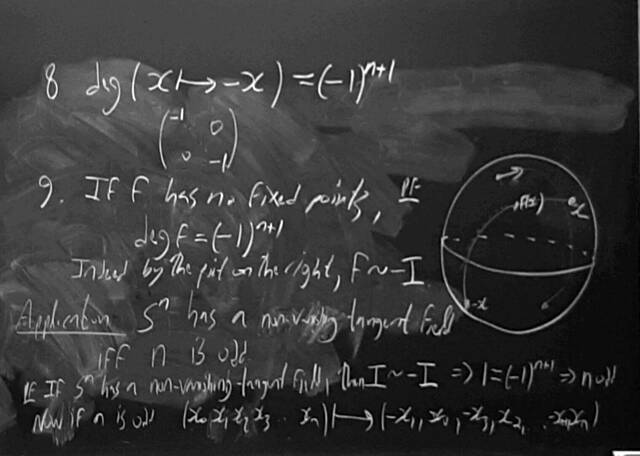 8 deg (x ↦ -x) = (-1)^{n+1}
(-1 0
0 -1)
9. If f has no fixed points, PF
deg f = (-1)^{n+1}
Indeed by the pict on the right, f ~ -I
f(x) x
-x
Application S^n has a non-vanishing tangent field
iff n is odd
PF If S^n has a non-vanishing tangent field, then I ~ -I ⇒ 1 = (-1)^{n+1} ⇒ n odd
Now if n is odd (x_0 x_1 x_2 x_3 .. x_n) ↦ (-x_1, x_0, -x_3, x_2,